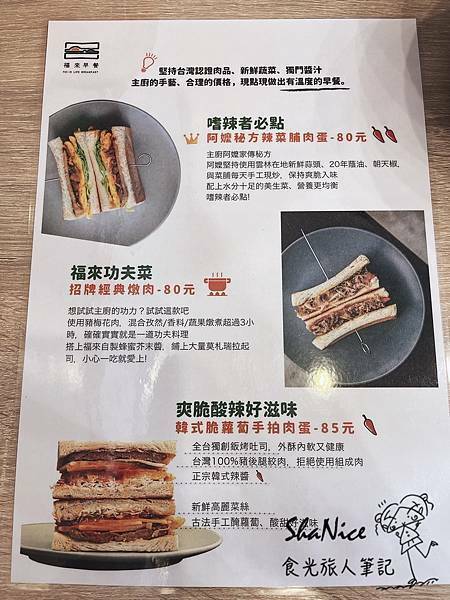 福來早餐
堅持台灣認證肉品、新鮮蔬菜、獨門醬汁
主廚的手藝、合理的價格，現點現做出有溫度的早餐。
嗜辣者必點
阿嬤秘方辣菜脯肉蛋-80元
主廚阿嬤家傳秘方
阿嬤堅持使用雲林在地新鮮蒜頭、20年蔭油、朝天椒,
與菜脯每天手工現炒，保持爽脆入味
配上水分十足的美生菜、營養更均衡
嗜辣者必點!
福來功夫菜
招牌經典燉肉-80元
想試試主廚的功力？試試這款吧
使用豬梅花肉，混合孜然/香料/蔬果燉煮超過3小
時，確確實實就是一道功夫料理
搭上福來自製蜂蜜芥末醬，鋪上大量莫札瑞拉起
司，小心一吃就愛上!
爽脆酸辣好滋味
韓式脆蘿蔔手拍肉蛋-85元
全台獨創鈑烤吐司，外酥內軟又健康
台灣100%豬後腿絞肉，拒絕使用組成肉
正宗韓式辣醬
新鮮高麗菜絲
古法手工醃蘿蔔、酸甜好滋味
ShaNice
食光旅人筆記